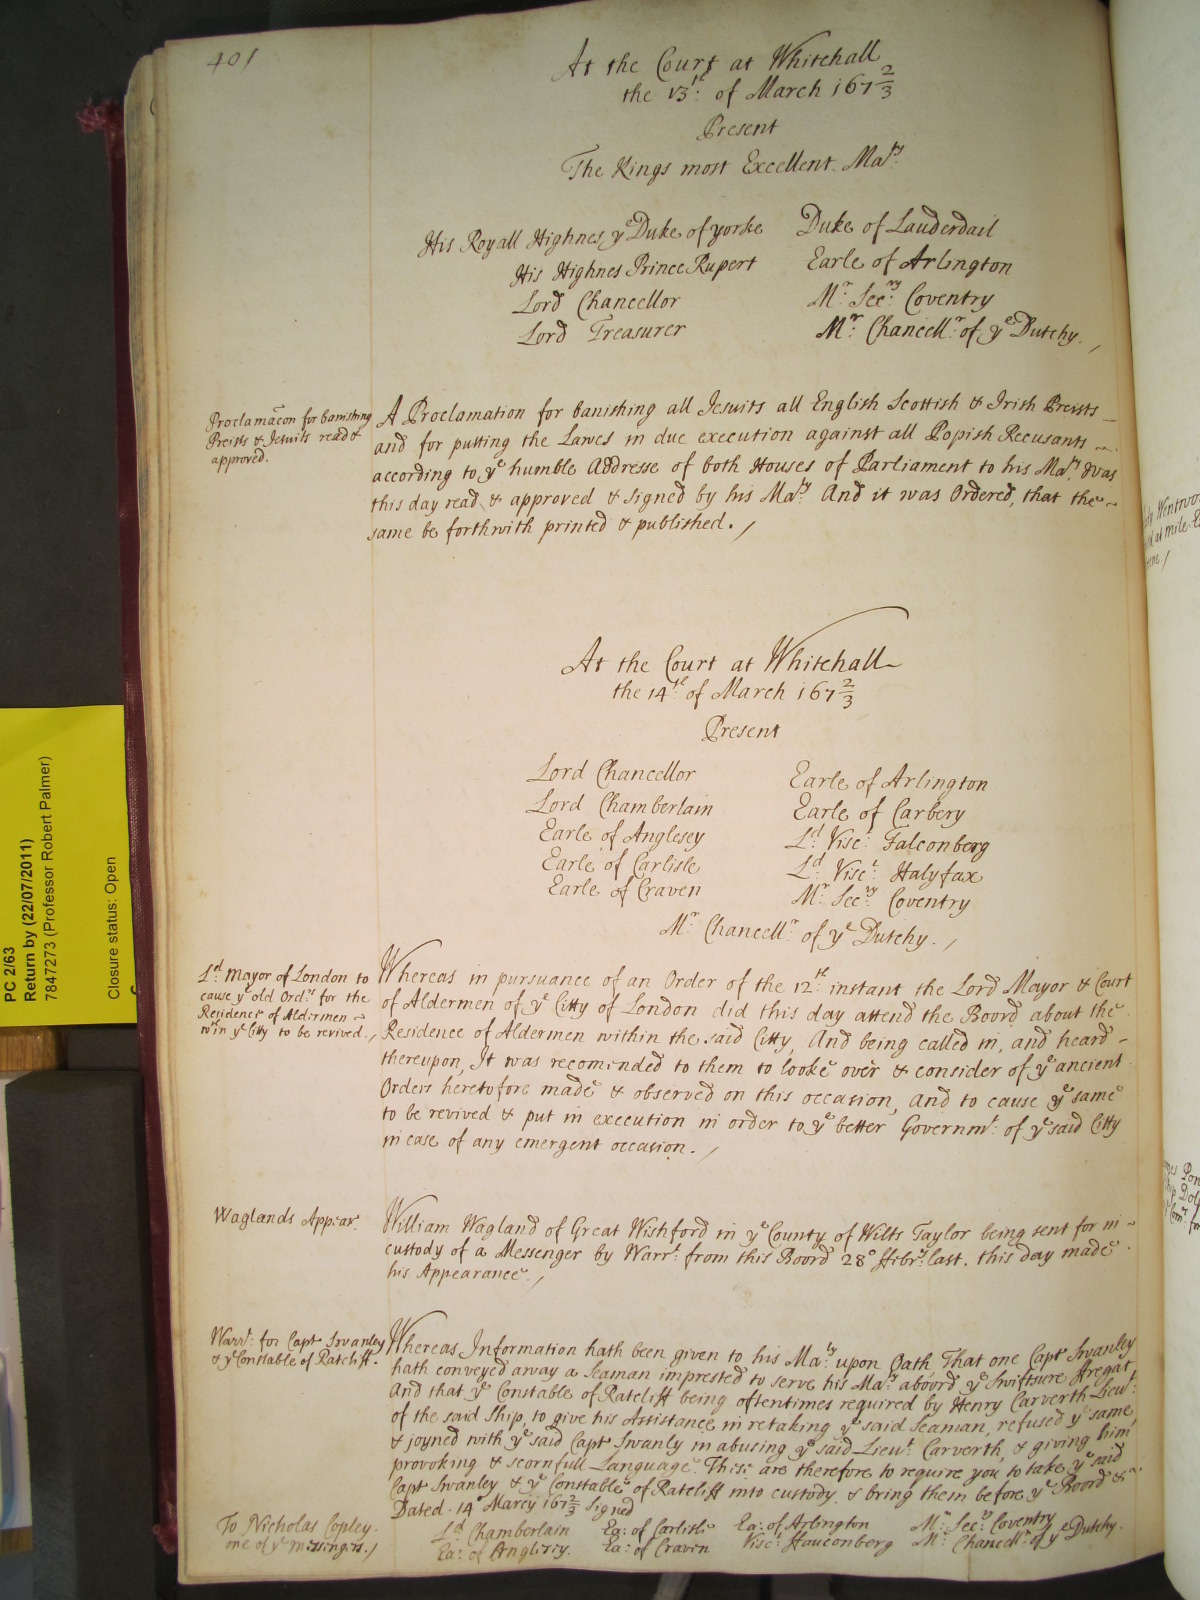 401
At the Court at Whitehall
the 13th: of March 167 2/3
Present
The Kings most Excellent Maty:
His Royall Highnes ye Duke of yorke
His Highnes Prince Rupert
Lord Chancellor
Lord Treasurer
Duke of Lauderdail
Earle of Arlington
Mr: Secry: Coventry
Mr: Chancellr: of ye Dutchy.
Proclamacon for banishing
Preists & Jesuits read &
approved.
A Proclamation for banishing all Jesuits all English Scottish & Irish Preists
and for putting the Lawes in due execution against all Popish Recusants
according to ye humble Addresse of both Houses of Parliament to his Maty, was
this day read, & approved & signed by his Maty: And it was Ordered, that the
same be forthwith printed & published.
At the Court at Whitehall
the 14th of March 167 2/3
Present
Lord Chancellor
Lord Chamberlain
Earle of Anglesey
Earle of Carlisle
Earle of Craven
Earle of Arlington
Earle of Carbery
Ld: Visct: Falconberg
Ld: Visct: Halyfax
Mr: Secry: Coventry
Mr: Chancellr: of ye Dutchy.
Ld: Mayor of London to
cause ye old Ordrs for the
Residence of Aldermen
wthin ye Citty to be revived.
Whereas in pursuance of an Order of the 12th: instant the Lord Mayor & Court
of Aldermen of ye Citty of London did this day attend the Board about the
Residence of Aldermen within the said Citty, And being called in, and heard
thereupon, It was recomended to them to looke over & consider of ye ancient
Orders heretofore made & observed on this occasion, and to cause ye same
to be revived & put in execution in order to ye better Governmt: of ye said Citty
in case of any emergent occasion.
Waglands Appear.
William Wagland of Great Wishford in ye County of Wilts Taylor being sent for in
custody of a Messenger by Warrt: from this Board 28o Febry: last. this day made
his Appearance.
Warrt: for Capt Swanley
& ye Constable of Ratcliff.
Whereas Information hath been given to his Maty: upon Oath That one Capt Swanley
hath conveyed away a Seaman imprested to serve his Maty: aboord ye Swiftsure ffregat
And that ye Constable of Ratcliff being oftentimes required by Henry Carverth Lieut:
of the said Ship, to give his Assistance in retaking ye said Seaman, refused ye same,
& joyned with ye said Capt Swanly in abusing ye said Lieut: Carverth, & giving him
provoking & scornfull Language. These are therefore to require you to take ye said
Capt Swanley & ye Constable of Ratcliff into custody & bring them before ye Board &c
Dated 14o March 167 2/3 Signed
To Nicholas Copley
one of ye messingrs.
Ld: Chamberlain
Ea: of Anglesey.
Ea: of Carlisle
Ea: of Craven
Ea: of Arlington
Visct: Fauconberg
Mr: Secry Coventry
Mr: Chancellr: of ye Dutchy.
PC 2/63
Return by (22/07/2011)
7847273 (Professor Robert Palmer)
Closure status: Open